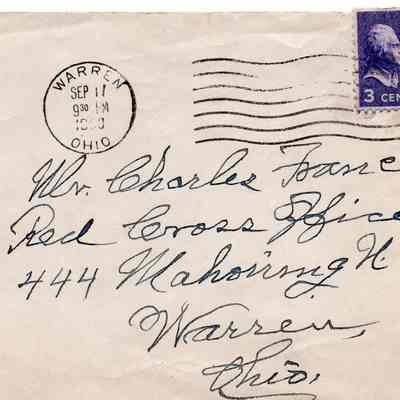 WARREN
SEP 11
9 30 PM
OHIO
3 CEN
Mr. Charles Franc
Red Cross Office
444 Mahoning N.
Warren,
Ohio.